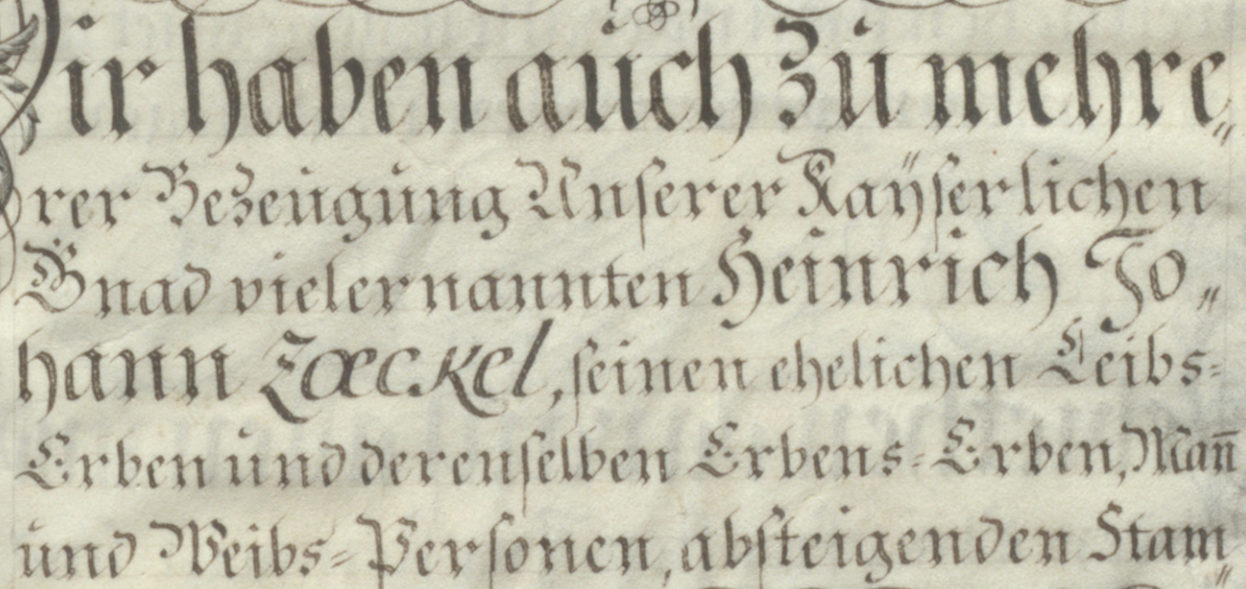 Wir haben auch zu mehre„
rer Bezeugung Unserer Kaÿserlichen
Gnad vielernannten Heinrich Jo„
hann Zœckel, seinen ehelichen Leibs=
Erben und derenselben Erbens=Erben, Mañ
und Weibs=Personen, absteigenden Stam„